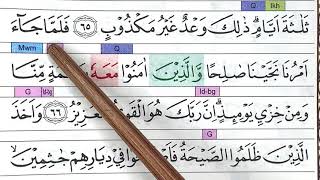 Q Ikh
ثَلٰثَةَ اَيَّامٍۗ ذٰلِكَ وَعْدٌ غَيْرُ مَكْذُوْبٍ ٦٥ فَلَمَّا جَاۤءَ
Mwm Q
اَمْرُنَا نَجَّيْنَا صٰلِحًا وَّالَّذِيْنَ اٰمَنُوْا مَعَهٗ مِّنَّا
G Id-bg
وَمِنْ خِزْيِ يَوْمِىِٕذٍۗ اِنَّ رَبَّكَ هُوَ الْقَوِيُّ الْعَزِيْزُ ٦٦ وَاَخَذَ
G
الَّذِيْنَ ظَلَمُوا الصَّيْحَةُ فِيْ دِيَارِهِمْ جٰثِمِيْنَ